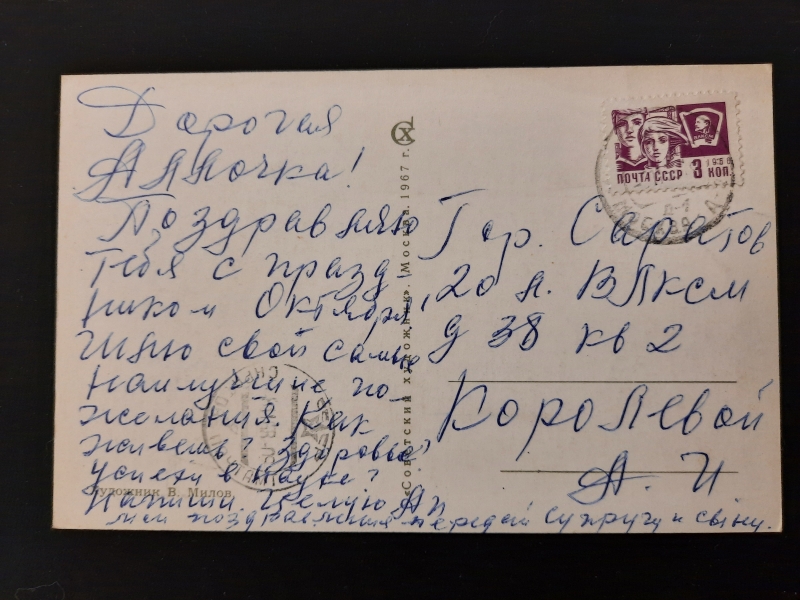 Дорогая
Анночка!
Поздравляю
тебя с празд
ником Октября,
шлю свои самые
наилучшие по-
желания. Как
живешь? Здоровье,
успехи в науке?
Напиши. Целую
мои поздравления передай супругу и сыну.
Художник В. Милов
«Советский художник». Москва. 1967 г.
СХ
ПОЧТА СССР 3 КОП
1966
ВЛКСМ
Гор. Саратов
20 л. ВЛКСМ
д 38 кв 2
Королевой
А. И